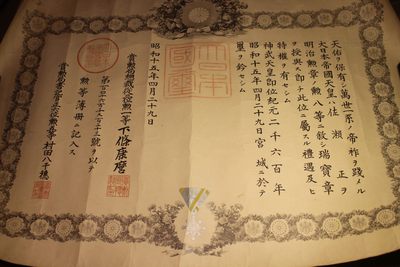 天佑ヲ保有シ萬世一系帝祚ヲ踐メル
大日本帝國天皇ハ佐瀬正ヲ
明治勲章ノ勲八等ニ敍シ瑞寶章
ヲ授與ス即チ此位ニ屬スル禮遇及ヒ
特權ヲ有セシム
神武天皇即位紀元二千六百年
昭和十五年四月二十九日宮城ニ於テ
璽ヲ鈐セシム
大日本國璽
昭和十五年四月二十九日
賞勲局總裁從三位勲二等下條康麿
勲等簿冊ニ記入ス
賞勲局書記官正五位勲五等村田八千穗